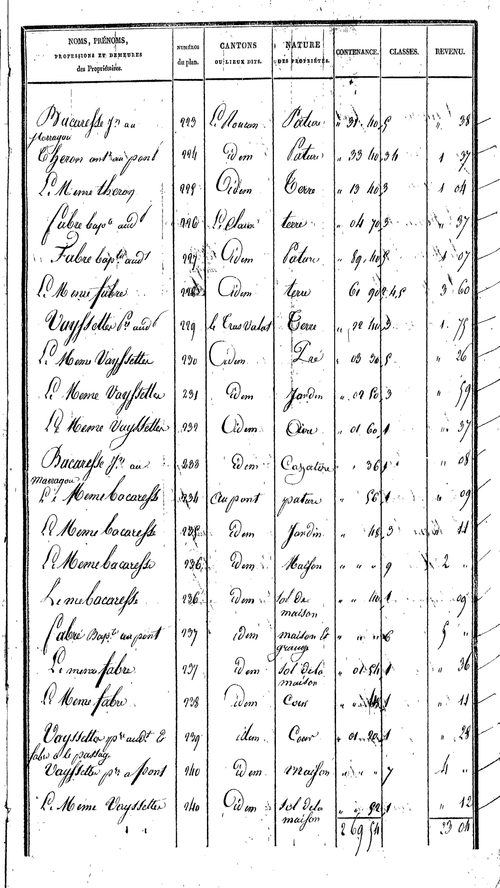 NOMS, PRÉNOMS, PROFESSIONS ET DEMEURES des Propriétaires. NUMÉROS du plan. CANTONS OU LIEUX DITS. NATURE DES PROPRIÉTÉS. CONTENANCE. CLASSES. REVENU.
Bacaresse Jn au 223 Pature " 31 40 5 " 38
marragou
Theron ant au pont 224 idem Pature " 33 40 3 4 1 37
Le Meme theron 225 idem Terre " 13 40 3 1 04
fabre bapte 226 terre " 04 70 3 " 37
fabre bapte 227 idem Pature " 89 40 5 1 07
Le Meme fabre 228 idem terre 61 90 2 4 5 3 60
Vayssettes 229 le Tras Valat Terre " 22 40 3 1 75
Le Meme Vayssettes 230 idem Pré " 03 30 5 " 26
Le Meme Vayssettes 231 idem Jardin " 02 50 3 " 59
Le Meme Vayssettes 232 idem " 01 60 1 " 37
Bacaresse Jn au 233 idem " 36 1 " 08
marragou
Le Meme bacaresse 234 au pont pature " 56 1 " 09
Le Meme bacaresse 235 idem Jardin " 48 3 " 11
Le Meme bacaresse 236 idem Maison " " " 9 2 "
Le meme bacaresse 236 idem sol de " " 40 1 " 09
maison
fabre Bapt au pont 237 idem maison et " " " 6 5 "
grange
Le meme fabre 237 idem sol de la " 01 54 1 " 36
maison
Le Meme fabre 238 idem Cour " " 48 1 " 11
Vayssettes et 239 idem Cour " 01 20 1 " 28
fabre
Vayssettes pre a pont 240 idem Maison " " " 7 4 "
Le Meme Vayssettes 240 idem sol de la " " 52 1 " 12
maison
2 69 54 23 04